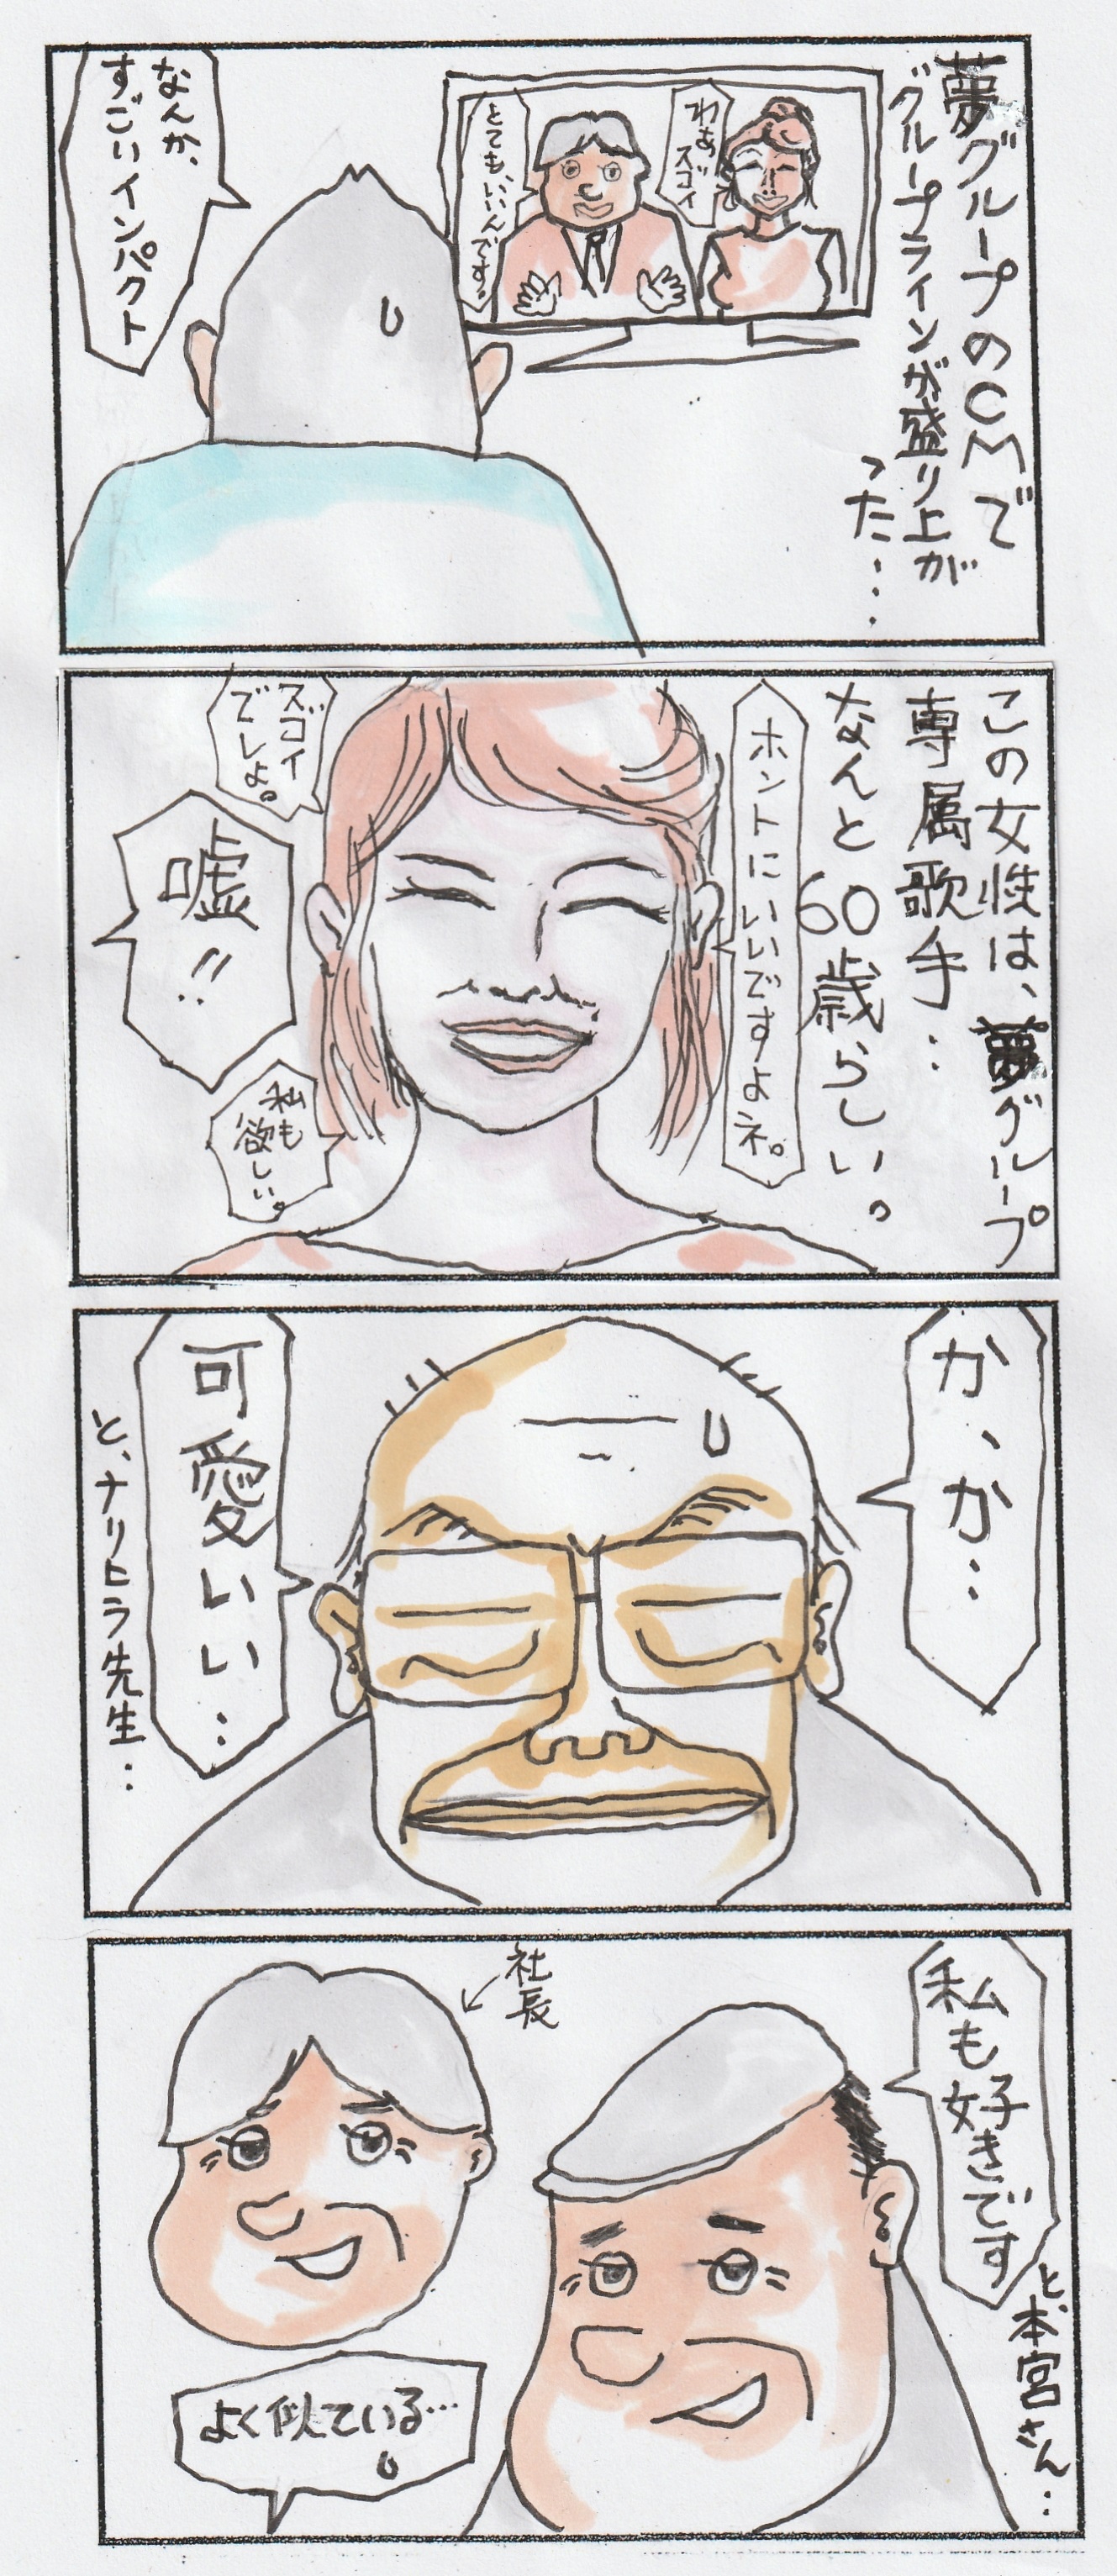 夢グループのCMで
グループラインが盛り上が
った…
わぁ
スゴイ
とても、いいんです。
なんか、
すごいインパクト
この女性は、夢グループ
専属歌手…
なんと60歳らしい。
ホントにいいですよネ。
スゴイ
でしょ。
嘘!!
私も
欲しい。
か、か…
可愛いい…
と、ナリヒラ先生…
私も好きです
と、本宮さん…
社長
よく似ている…